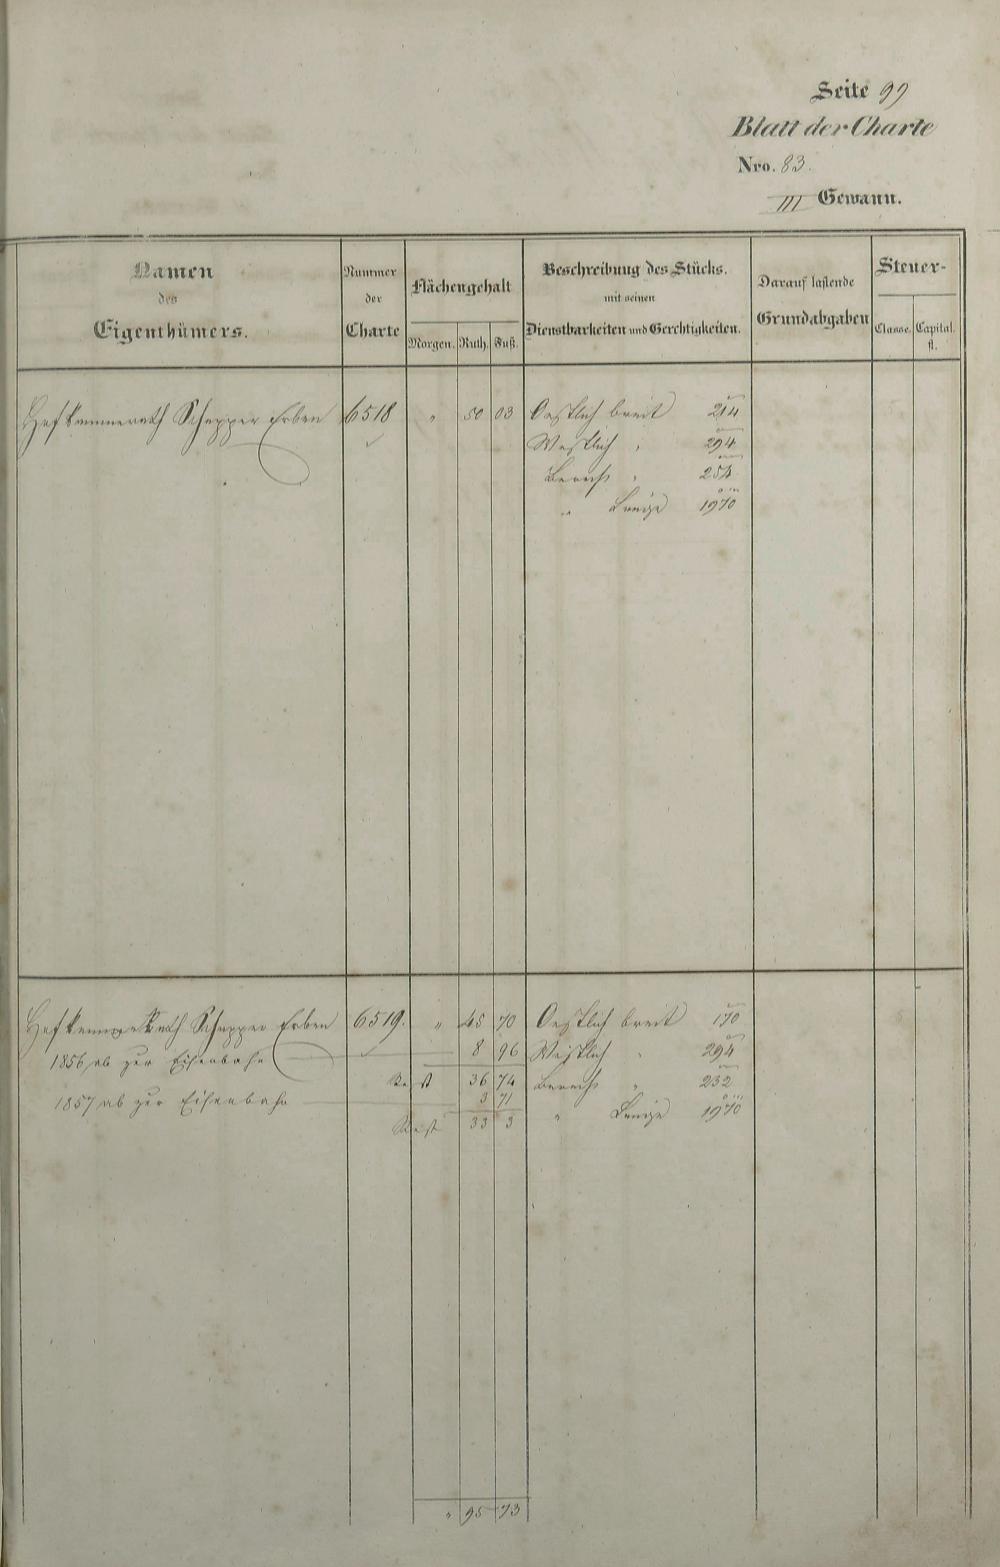 Seite 99
Blatt der Charte
Nro. 83.
III Gewann.
Namen des Eigenthümers.
Nummer der Charte
Flächengehalt
Morgen. Ruth. Fuß.
Beschreibung des Stücks.
mit seinen
Dienstbarkeiten und Gerechtigkeiten.
Darauf lastende
Grundabgaben
Steuer-
Classe. Capital. fl.
Hofkammerrath Schepper Erben 6518 " 50 03 Oestlich breit 214
Westlich " 294
Berech " 254
" Länge 1970
Hofkammerrath Schepper Erben 6519. " 45 70 Oestlich breit 170
1856 ab zur Eisenbahn 8 96 Westlich " 294
Rest 36 74 Berech " 232
1857 ab zur Eisenbahn 3 71
Rest 33 3 " Länge 1970
" 95 73